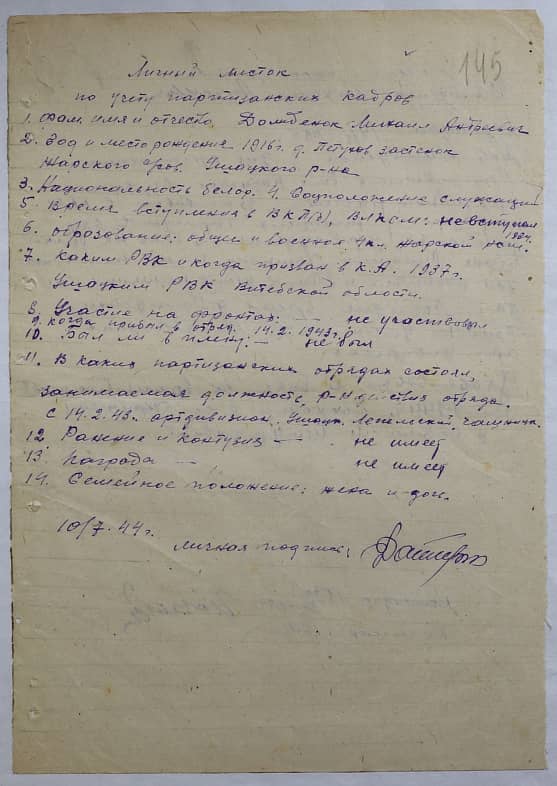 145
Личный листок
по учету партизанских кадров
1. Фам. имя и отчество Домбенок Михаил
2. Год и место рождения 1916 г. д. Петров застенок
Жарского с/сов. Ушацкого р-на
3. Национальность белор. 4. Соцположение служащий
5. Время вступления в ВКП(б), ВЛКСМ: не вступал
6. образование: общее и военное 4 кл. Жарской
7. Каким РВК и когда призван в К.А. 1937 г.
Ушацким РВК Витебской области.
8. Участие на фронтах: — не участвовал
9. когда прибыл в отряд. 14.2.1943 г.
10. Был ли в плену: — не был
11. В каких партизанских отрядах состоял,
занимаемая должность, р-н действия отряда.
с 14.2.43. артдивизион. Ушацк. Лепельский.
12. Ранение и контузия — не имеет
13. Награда — не имеет
14. Семейное положение: жена и доч.
10/7.44 г.
личная подпись: